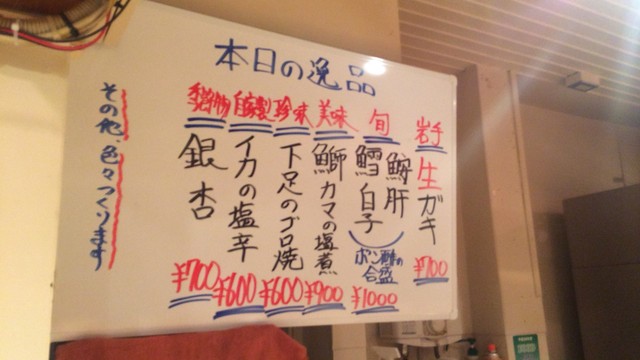 本日の逸品
岩手
生ガキ
¥700
旬
鮟肝
鱈白子
ポン酢の
合盛
¥1000
美味
鰤カマの塩煮
¥900
珍味
下足のゴロ焼
¥600
自家製
イカの塩辛
¥600
銀杏
¥700
その他、色々つくります